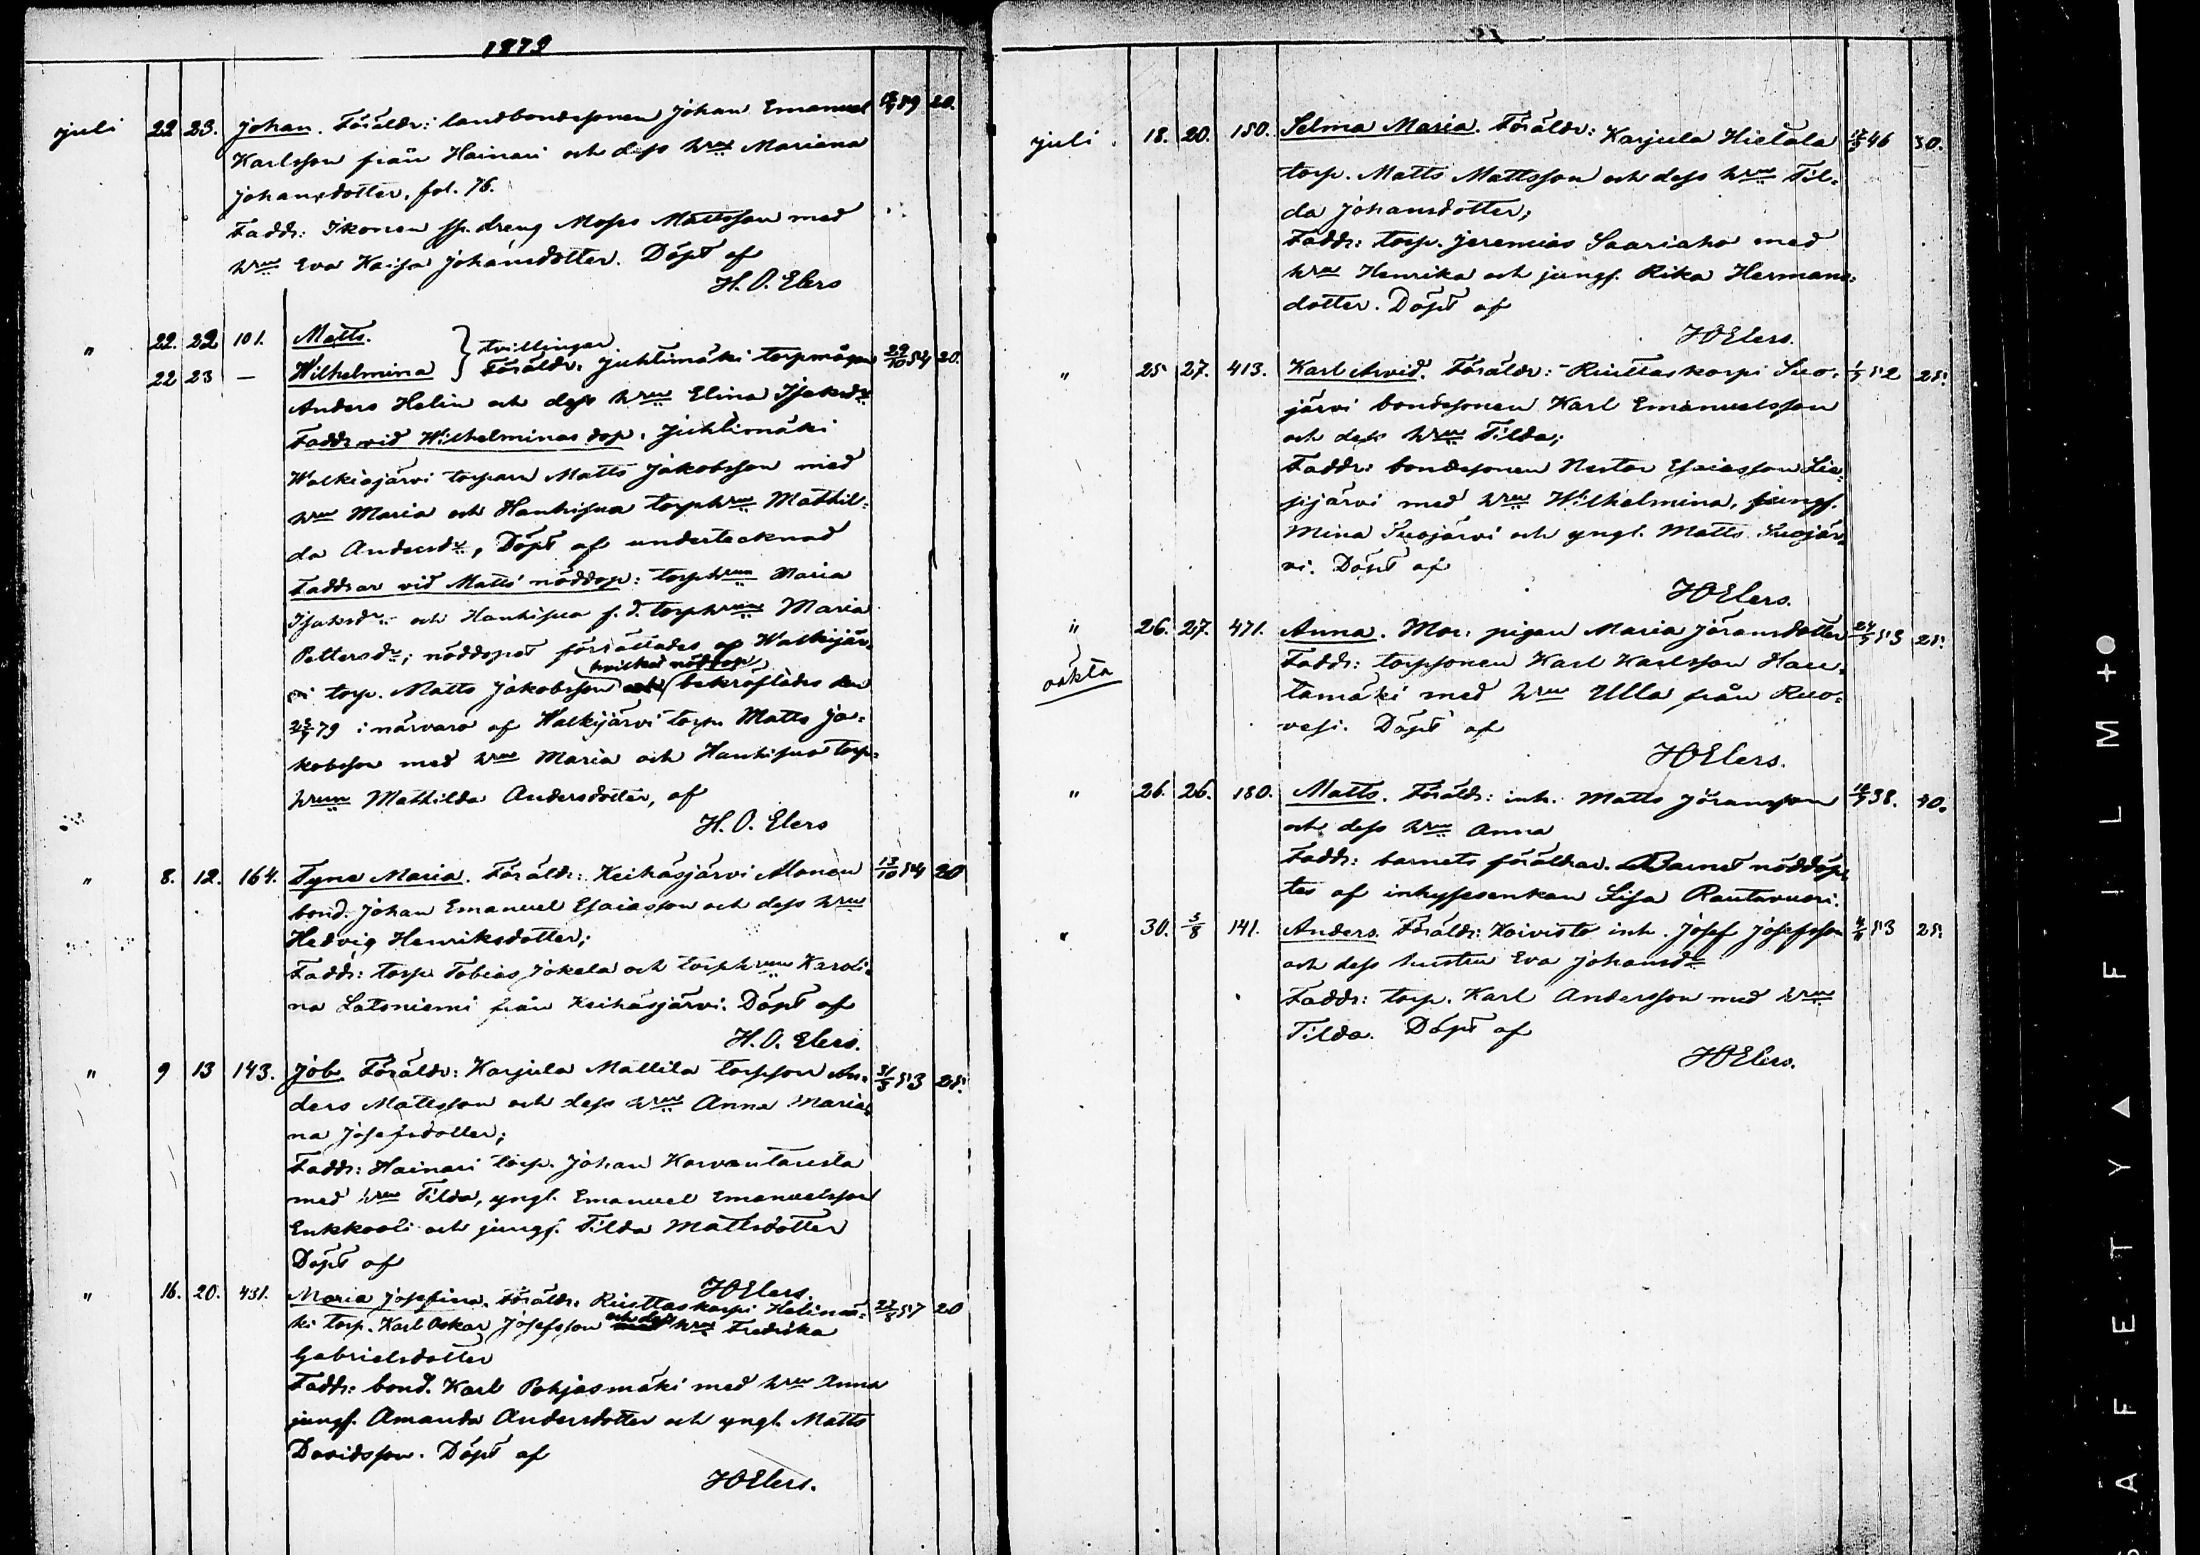 1879
juli 22 23. Johan. Föräldr: landbondesonen Johan Emanuel 59 20.
Karlsson från Hainari och dess hru Mariana
Johansdotter, fol. 76.
Faddr: Ikonen sp. dreng Moses Mattsson med
hru Eva Kaisa Johansdotter. Döpt af
H. O. Elers
" 22. 22 101. Matts. } tvillingar.
22 23 — Wilhelmina } Föräldr. Juhtimäki torpmågen 29/10 54 20.
Anders Helin och dess hru Elina Isaksdr
Faddr vid Wilhelminas dop, Juhtimäki
Walkiajärvi torparn Matts Jakobsson med
hru Maria och Hanhisua torphru Mathil-
da Andersdr, Döpt af undertecknad
Faddrar vid Matts' nöddop: torphrun Maria
Isaksdr och Hanhisua f. d. torphrun Maria
Pettersdr; nöddopet förrättades af Walkijär-
vi torp. Matts Jakobsson hvilket nöddop bekräftades den
79 i närvaro af Walkijärvi torp. Matts Ja-
kobsson med hru Maria och Hanhisua torp-
hrun Mathilda Andersdotter, af
H. O. Elers
" 8. 12. 164. Tyne Maria. Föräldr: Keihäsjärvi Alonen 13/10 54 20
bond. Johan Emanuel Esaiasson och dess hru
Hedvig Henriksdotter;
Faddr: torp. Tobias Jokela och torphrun Karoli-
na Latoniemi från Keihäsjärvi. Döpt af
H. O. Elers.
" 9 13 143. Job. Föräldr: Karjula Mattila torpson An- 31/3 53 25.
ders Mattsson och dess hru Anna Maria-
na Josefsdotter;
Faddr: Hainari torp. Johan Korvantausta
med hru Tilda, yngl. Emanuel Emanuelsson
Enkkooli och jungf. Tilda Mattsdotter
Döpt af
HOElers.
" 16. 20. 431. Maria Josefina. Föräldr. Riuttaskorpi Helinmä- 57 20
ki torp. Karl Oskar Josefsson och dess hru Fredrika
Gabrielsdotter
Faddr: bond. Karl Pohjasmäki med hru Anna
jungf. Amanda Andersdotter och yngl. Matts
Davidsson. Döpt af
HOElers.
juli. 18. 20. 150. Selma Maria. Föräldr: Karjula Hietala 46 30.
torp. Matts Mattsson och dess hru Til-
da Johansdotter;
Faddr: torp. Jeremias Saariaho med
hru Henrika och jungf. Rika Hermans-
dotter. Döpt af
HOElers.
" 25 27. 413. Karl Arvid. Föräldr: Riuttaskorpi Suo- 52 25.
järvi bondesonen Karl Emanuelsson
och dess hru Tilda;
Faddr: bondesonen Nestor Esaiasson Lia-
pijärvi med hru Wilhelmina, jungf.
Mina Suojärvi och yngl. Matts Suojär-
vi. Döpt af
HOElers.
" 26. 27. 471. Anna. Mor: pigan Maria Göransdotter 53 25.
oäkta Faddr: torpsonen Karl Karlsson Hau-
tamäki med hru Ulla från Ruo-
vesi. Döpt af
HOElers.
" 26. 26. 180. Matts. Föräldr: inh. Matts Göransson 38. 40.
och dess hru Anna
Faddr: barnets föräldrar. Barnet nöddöp-
tes af inhysesenkan Lisa Rautavuori.
" 30. 3/8 141. Anders. Föräldr: Koivisto inh. Josef Josefsson 53 25.
och dess hustru Eva Johansdr
Faddr: torp. Karl Andersson med hru
Tilda. Döpt af
HOElers.
SAFETY▲FILM